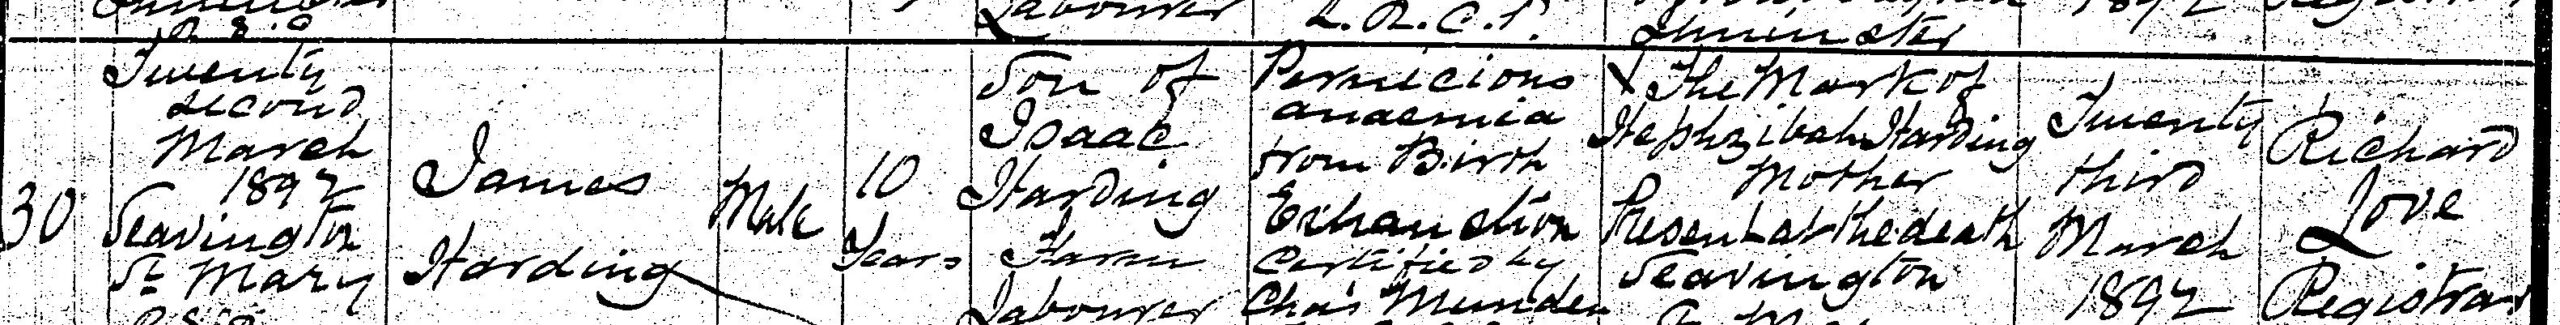 Labourer
L.R.C.P.
Ilminster
1892
R.S.D.
30
Twenty
second
March
1892
Seavington
St Mary
R.S.D.
James
Harding
Male
10
Years
Son of
Isaac
Harding
Farm
Labourer
Pernicious
anaemia
from Birth
Exhaustion
Certified by
Chas Munden
X The Mark of
Hephzibah Harding
Mother
Present at the death
Seavington
St Mary
Twenty
third
March
1892
Richard
Love
Registrar